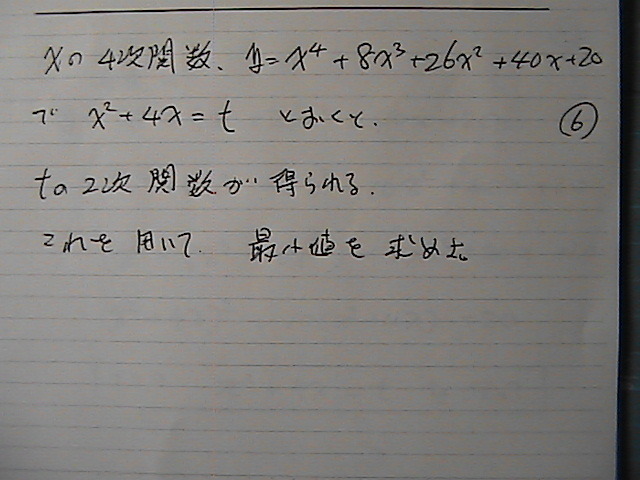 xの4次関数、y=x⁴+8x³+26x²+40x+20
で x²+4x=t とおくと、 ⑥
tの2次関数が得られる。
これを用いて、最小値を求めよ。